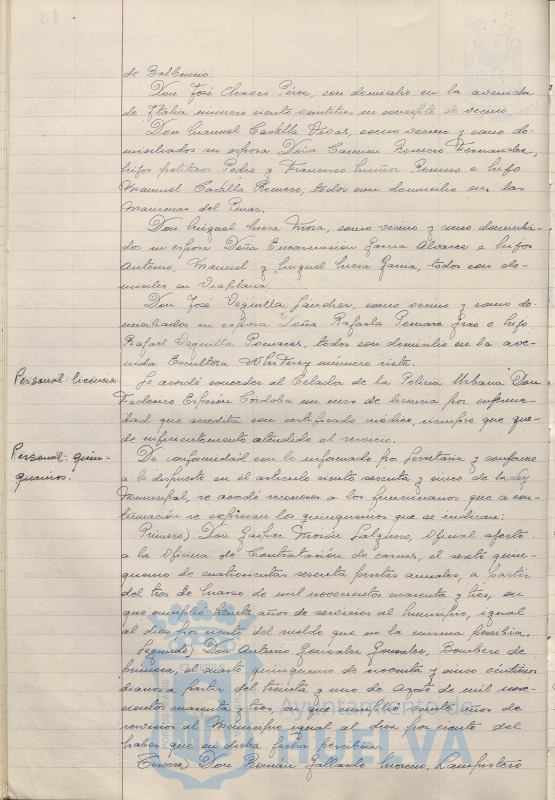 de Balbueno.
Don José Chaves Pérez, con domicilio en la avenida
de Italia numero ciento veintitres en concepto de vecino
Don Manuel Castilla Vivas, como vecino y como do-
miciliados su esposa Doña Carmen Romero Fernandez,
hijos politicos Pedro y Francisco Muñoz Romero e hijo
Manuel Castilla Romero, todos con domicilio en las
Marismas del Pinar.
Don Miguel Mesa Mora, como vecino y como domicilia-
dos su esposa Doña Encarnación Garcia Alvarez e hijos
Antonio, Manuel y Miguel Mesa Garcia, todos con do-
micilio en Viaplana.
Don José Veguilla Sanchez, como vecino y como do-
miciliados su esposa Doña Rafaela Pomares e hijo
Rafael Veguilla Pomares, todos con domicilio en la ave-
nida Escultora Whitney número siete.
Personal: licencia
Se acordó conceder al Celador de la Policia Urbana Don
Federico Espesón Córdoba un mes de licencia por enferme-
dad que acredita con certificado médico, siempre que que-
de suficientemente atendido el servicio.
Personal: quin-
quenios.
De conformidad con lo informado por Secretaria y conforme
a lo dispuesto en el articulo ciento sesenta y cinco de la Ley
Municipal, se acordó reconocer a los funcionarios que a con-
tinuación se expresan los quinquenios que se indican:
Primero) Don Gaspar Morón Salguero, Oficial afecto
a la Oficina de Contratación de carnes, el sexto quin-
quenio de cuatrocientas sesenta pesetas anuales, a partir
del tres de Marzo de mil novecientos cuarenta y tres, en
que cumplió treinta años de servicios al Municipio, igual
al diez por ciento del sueldo que en la misma percibia.
Segundo) Don Antonio Gonzalez Gonzalez, Bombero de
primera, el cuarto quinquenio de noventa y cinco centimos
diarios a partir del treinta y uno de Agosto de mil nove-
cientos cuarenta y tres, en que cumplió veinte años de
servicios al Municipio igual al diez por ciento del
haber que en dicha fecha percibia.
Tercero) Don Román Gallardo Moreno, Lampistero
Ayuntamiento de
HUELVA